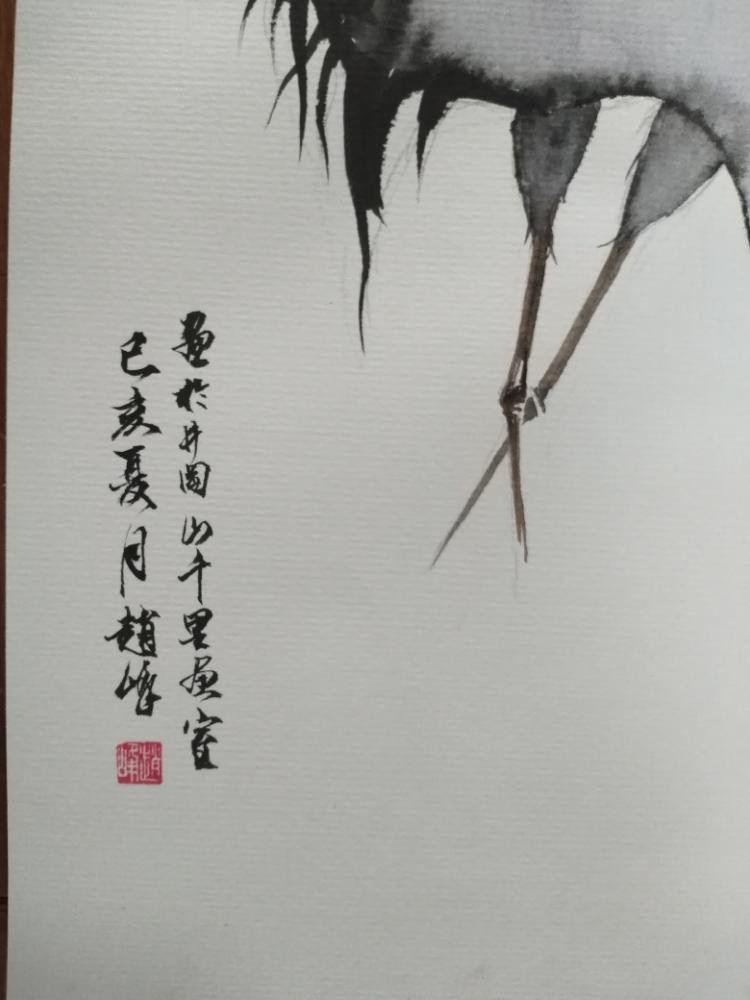 畫於井岡山千里画室
己亥夏月趙峰
趙峰